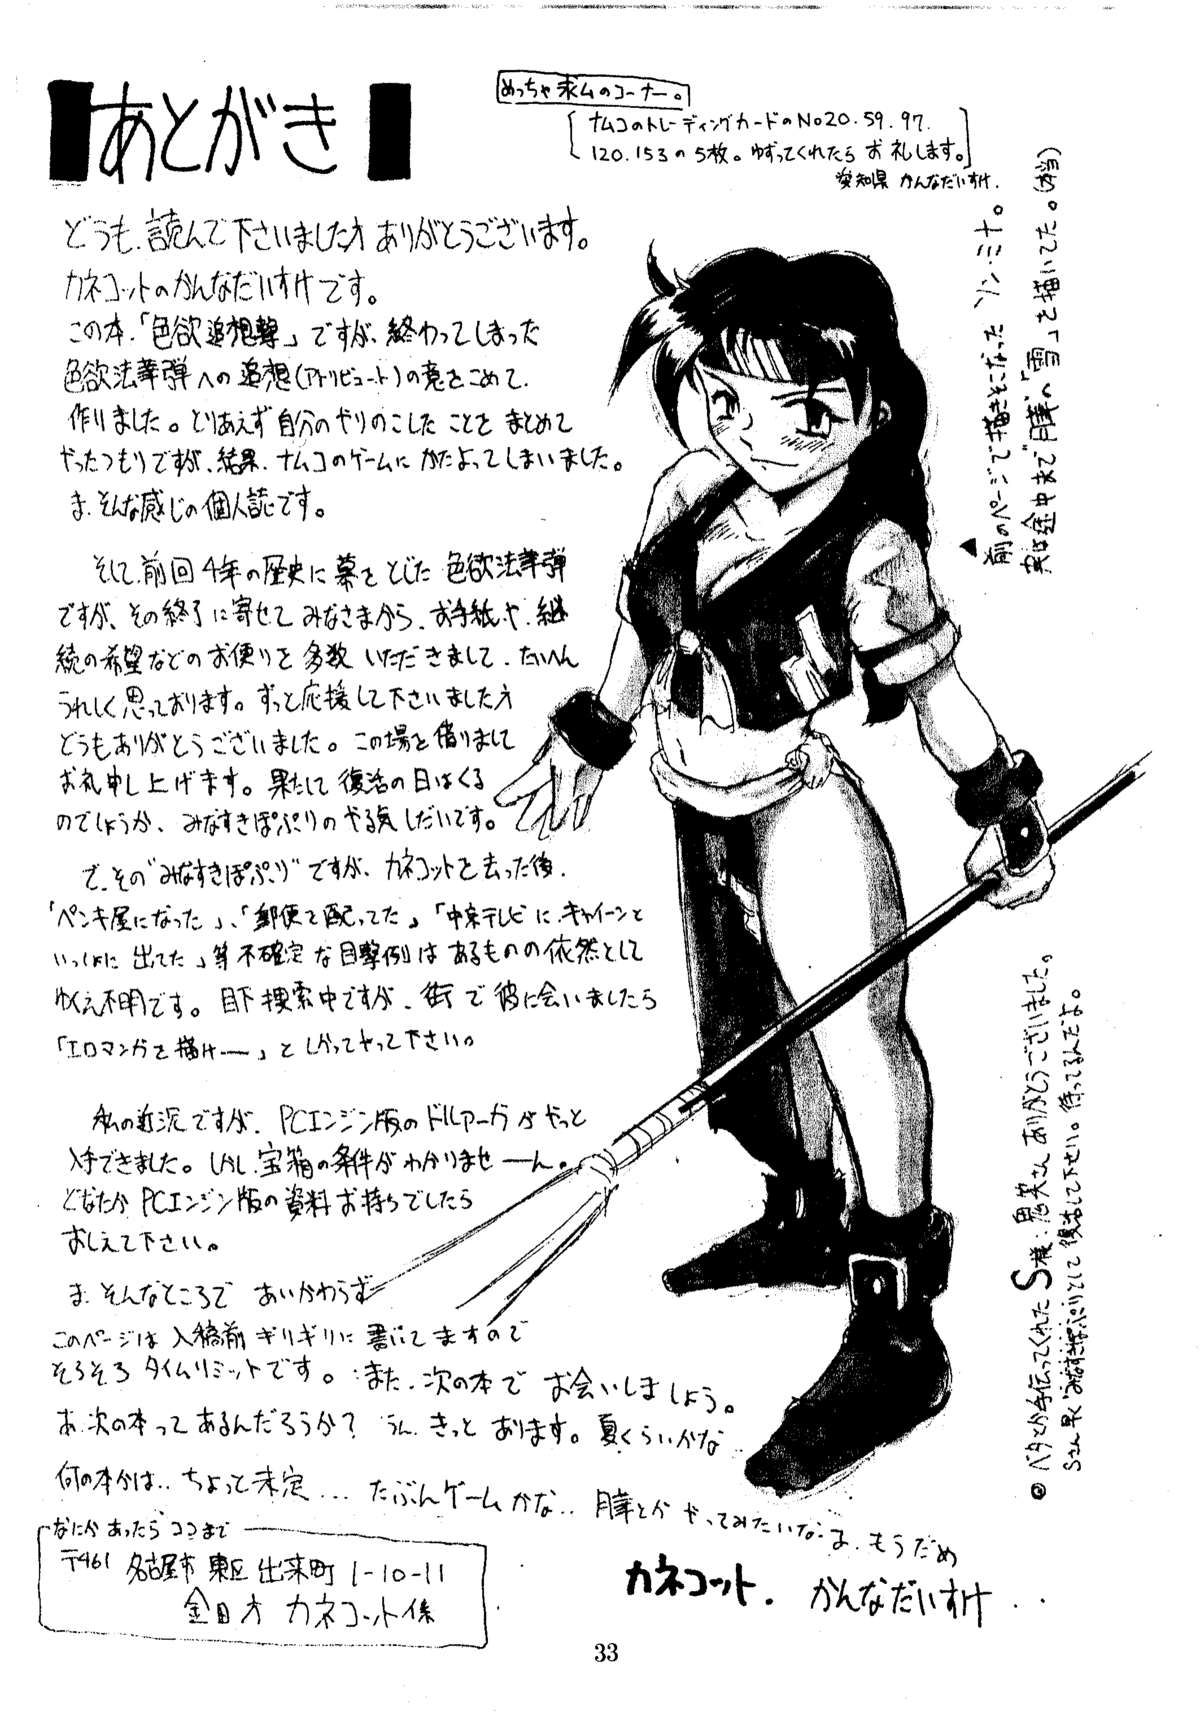 あとがき
めっちゃ求ムのコーナー。
ナムコのトレーディングカードのNo20.59.97.
120.153の5枚。ゆずってくれたら お礼します。
愛知県 かんなだいすけ.
どうも、読んで下さいましたオ ありがとうございます。
カネコットのかんなだいすけです。
この本.「色欲追想撃」ですが、終わってしまった
色欲法華弾への追想(アトリビュート)の意をこめて、
作りました。とりあえず自分のやりのこしたことをまとめて
やったつもりですが、結果、ナムコのゲームにかたよってしまいました。
ま、そんな感じの個人誌です。
そして、前回4年の歴史に幕をとじた色欲法華弾
ですが、その終了に寄せてみなさまから、お手紙や、継
続の希望などのお便りを多数いただきまして、たいへん
うれしく思っております。ずっと応援して下さいましたオ
どうもありがとうございました。この場を借りまして
お礼申し上げます。果たして復活の日はくる
のでしょうか、みなすきぽぷりのやる気しだいです。
で、その"みなすきぽぷり"ですが、カネコットを去った後、
「ペンキ屋になった」、「郵便を配ってた」「中京テレビに、キャイーンと
いっしょに出てた」等不確定な目撃例はあるものの依然として
ゆくえ不明です。目下捜索中ですが、街で彼に会いましたら
「エロマンガを描けー」としかってやって下さい。
私の近況ですが、PCエンジン版のドルアーガがやっと
入手できました。しかし、宝箱の条件がわかりませーん。
どなたかPCエンジン版の資料お持ちでしたら
おしえて下さい。
ま、そんなところで あいかわらず
このページは入稿前ギリギリに書いてますので
そろそろタイムリミットです。また、次の本でお会いしましょう。
お、次の本ってあるんだろうか? うん、きっとあります。夏くらいかな
何の本かは..ちょっと未定...たぶんゲームかな.. 月華とかやってみたいな.ま、もうだめ
カネコット. かんなだいすけ..
なにかあったらココまで
〒461 名古屋市東区出来町1-10-11
金田方 カネコット係
▲前のページで描きそこなったソン・ミナ。
実は途中まで"月華"の「雪」を描いてた。(本当)
◎ベタとか手伝ってくれたS様、鬼笑さんありがとうございました。
Sさん早く"みなすきぽぷり"として復活して下せい。待ってるんだよ。
33